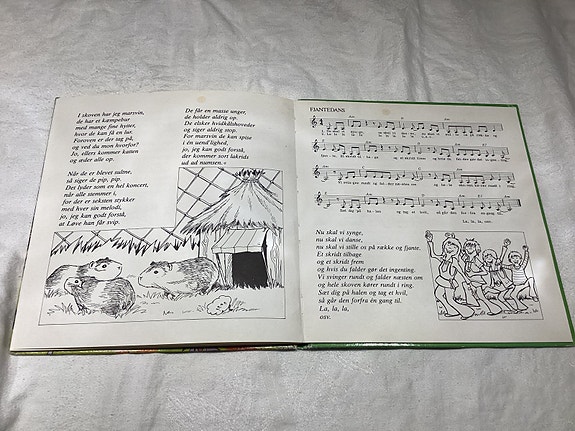 I skoven har jeg marsvin,
de har et kæmpebur
med mange fine hytter,
hvor de kan få en lur.
Foroven er der tag på,
og ved du mon hvorfor?
Jo, ellers kommer katten
og æder alle op.
Når de er blevet sultne,
så siger de pip, pip.
Det lyder som en hel koncert,
når alle stemmer i,
for der er seksten stykker
med hver sin melodi,
jo, jeg kan godt forstå,
at Løve han får svip.
De får en masse unger,
de holder aldrig op.
De elsker hvidkålshoveder
og siger aldrig stop.
For marsvin de kan spise
i én uend'lighed,
jo, jeg kan godt forstå,
der kommer sort lakrids
ud ad numsen.
FJANTEDANS
La, la, la, osv.
Nu skal vi synge,
nu skal vi danse,
nu skal vi stille os på række og fjante.
Et skridt tilbage
og et skridt frem
og hvis du falder gør det ingenting.
Vi svinger rundt og falder næsten om
og hele skoven kører rundt i ring.
Sæt dig på halen og tag et hvil,
så går den forfra én gang til.
La, la, la,
osv.